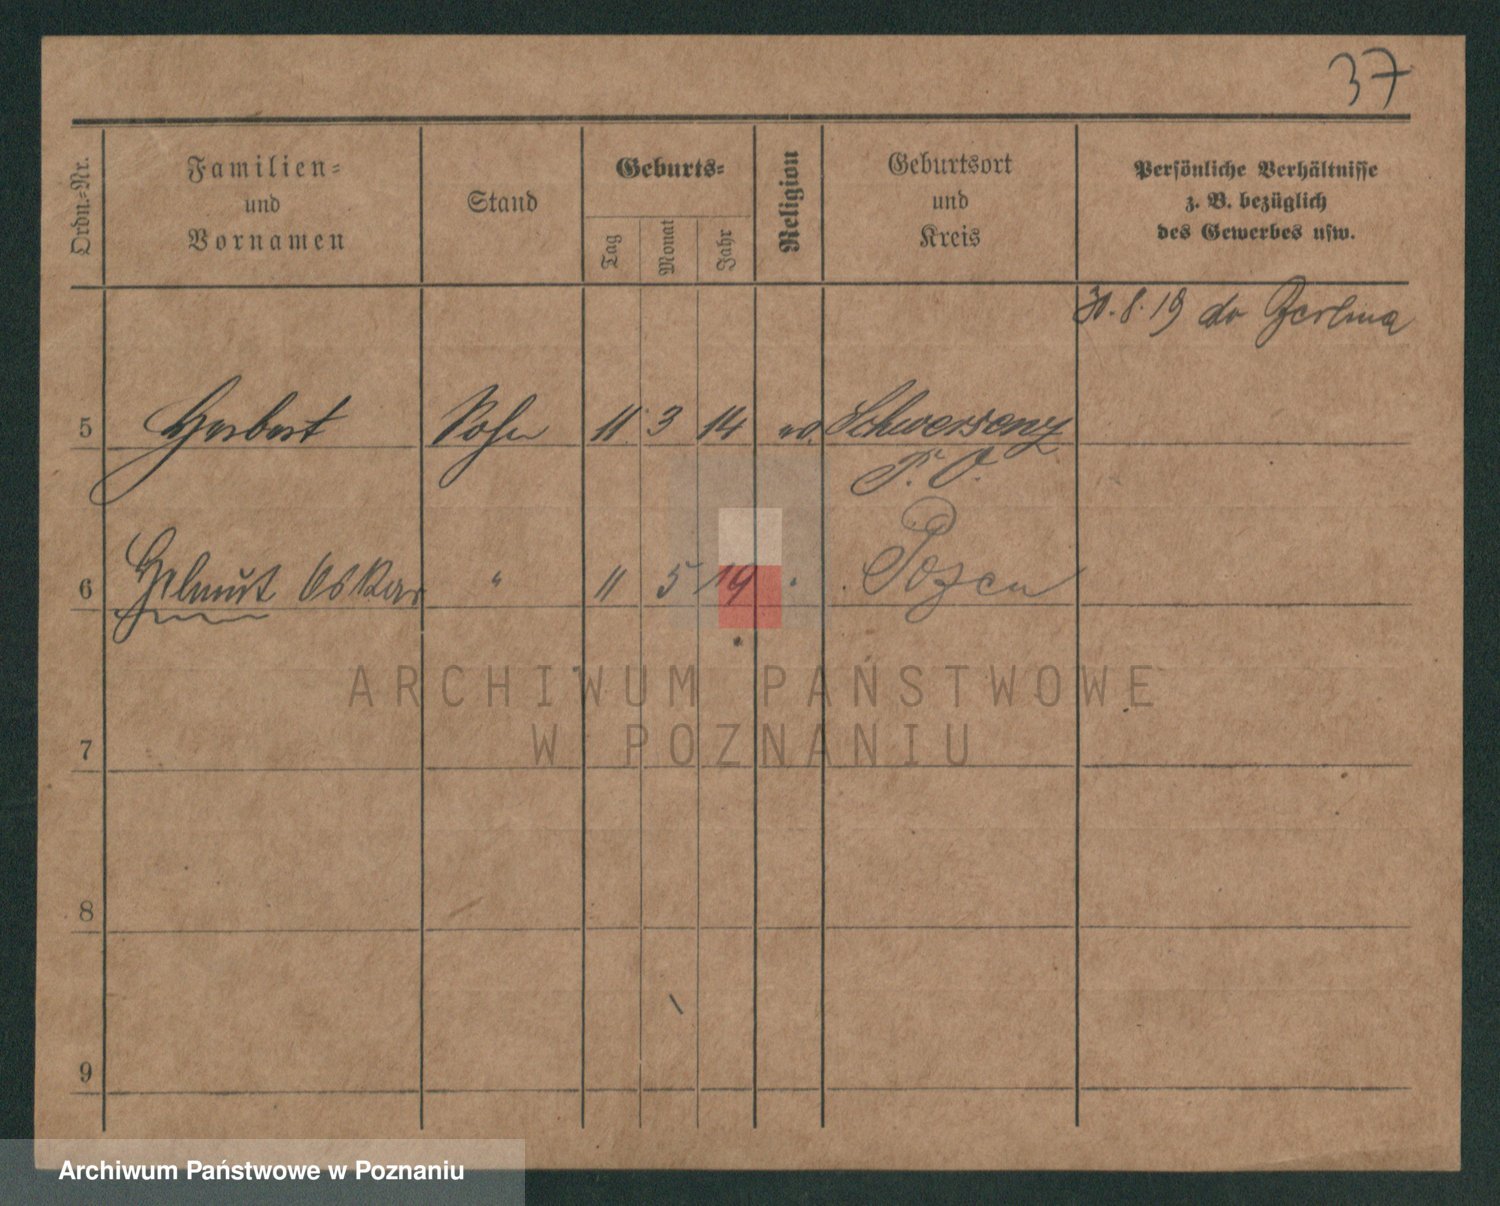 37
Ordn.-Nr.
Familien-
und
Vornamen
Stand
Geburts-
Tag
Monat
Jahr
Religion
Geburtsort
und
Kreis
Persönliche Verhältnisse
z. B. bezüglich
des Gewerbes usw.
30. 8. 19 do Berlina
5 Herbert Sohn 11 3 14 Schwersenz
P. O.
6 Helmut Oskar " 11 5 19 " Posen
7
8
9
ARCHIWUM PAŃSTWOWE
W POZNANIU
Archiwum Państwowe w Poznaniu